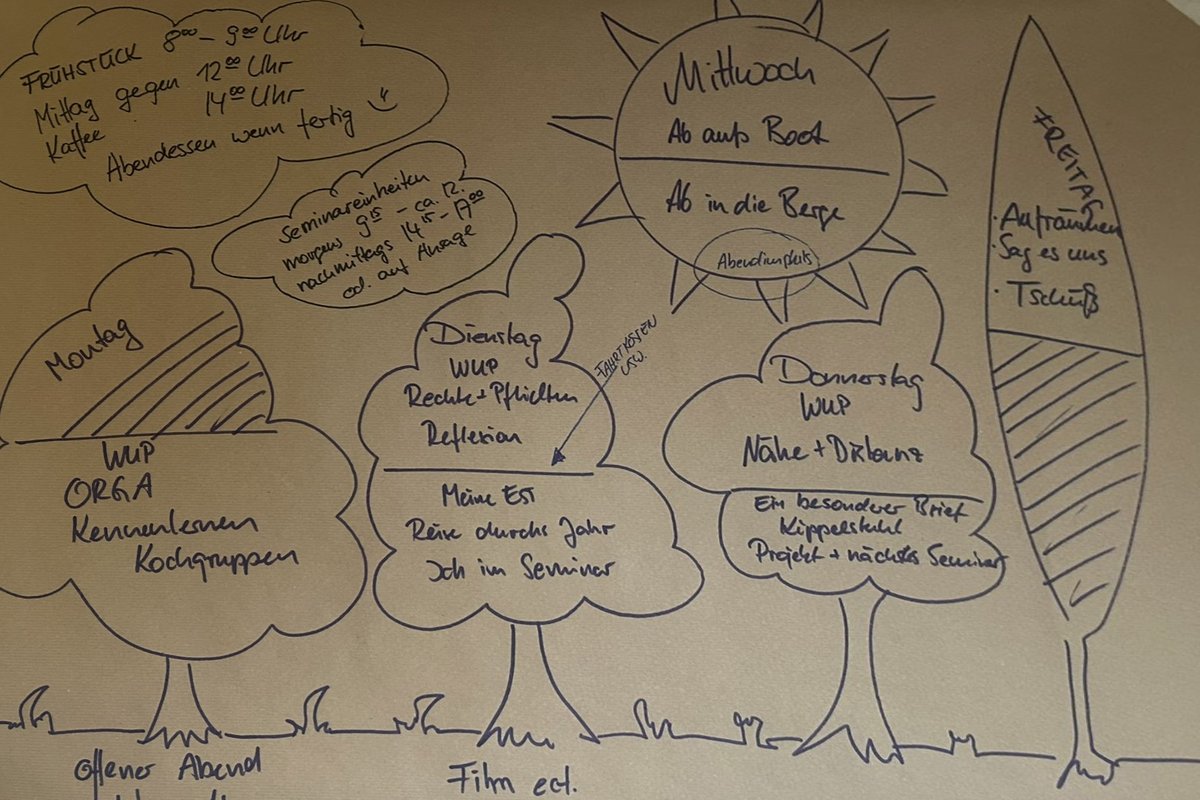 FRÜHSTÜCK 8⁰⁰ – 9⁰⁰ Uhr
Mittag gegen 12⁰⁰ Uhr
Kaffee 14⁰⁰ Uhr
Abendessen wenn fertig
Seminareinheiten
morgens 9¹⁵ – ca. 12.
nachmittags 14¹⁵ – 17⁰⁰
od. auf Ansage
Mittwoch
Ab aufs Boot
Ab in die Berge
Abendimpuls
FREITAG
· Aufräumen
· Sag es uns
· Tschüß
Montag
WUP
ORGA
Kennenlernen
Kochgruppen
Dienstag
WUP
Rechte + Pflichten
Reflexion
FAHRTKOSTEN
USW.
Meine EST
Reise durchs Jahr
Ich im Seminar
Donnerstag
WUP
Nähe + Distanz
Ein besonderer Brief
Kippelstuhl
Projekt + nächstes Seminar
offener Abend
Film ect.